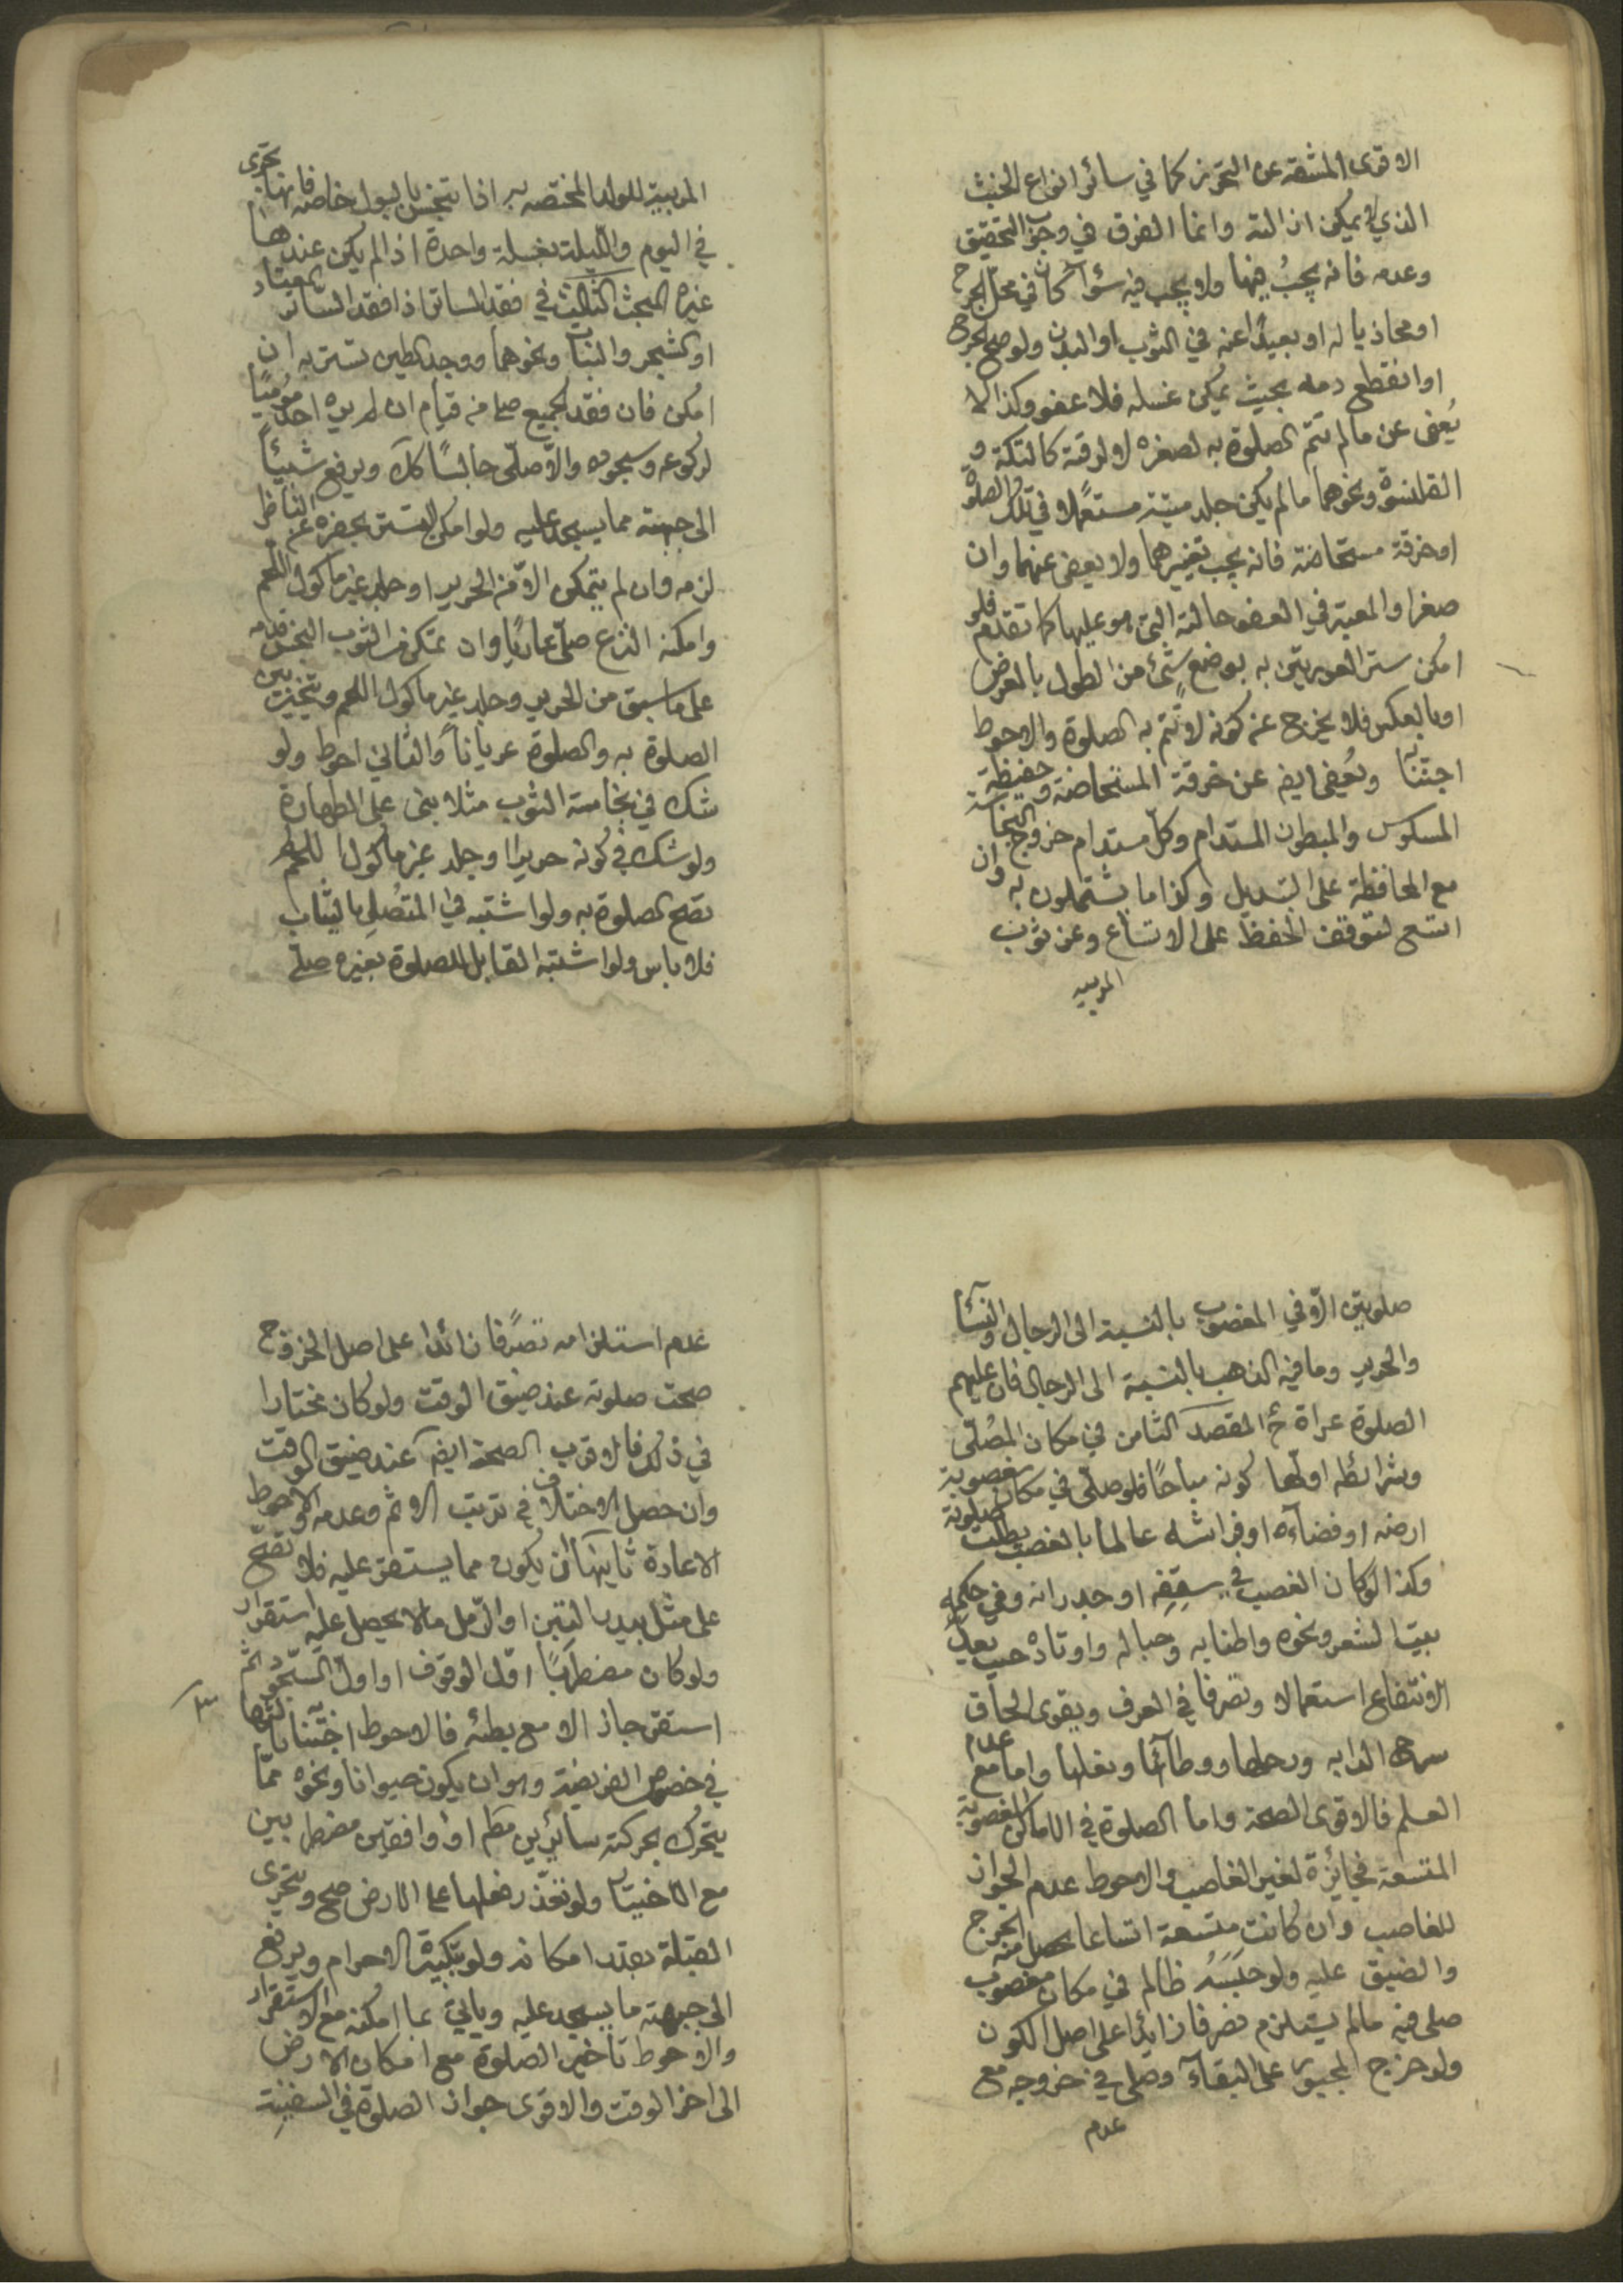 الاقوى المشقة عن التحرز كما في سائر انواع الخبث
الذي لا يمكن ازالته وانما الفرق في وجوب التخفيف
وعدمه فانه يجب فيها ولا يجب فيه سوآء كان في محل الجرح
او محاذيا له او بعيدًا عنه في الثوب او البدن ولو صح الجرح
او انقطع دمه بحيث يمكن غسله فلا عفو وكذا لا
يُعفى عن ما لم تتم الصلوة به لصغره او لرقته كالتكة و
القلنسوة ونحوهما ما لم يكن جلد ميتة مستعملا في تلك الصلوة
او خرقة مستحاضة فانه يجب تغييرهما ولا يعفى عنهما وان
صغرا والمعتبر في العفو حالته التي هو عليها كما تقدم فلو
امكن ستر العورتين به بوضع شئ من الطول بالعرض
او بالعكس فلا يخرج عن كونه لا تتم به الصلوة والاحوط
اجتنابه ويُعفى ايضا عن خرقة المستحاضة وحفيظة
المسلوس والمبطون المستدام وكل مستدام خروج النجاسة
مع المحافظة على التبديل وكذا ما يشتملون به وان
اتسع لتوقف الحفظ على الاتساع وعن ثوب
المربيه
المربية للولد المختصه به اذا تنجس بالبول خاصه فانها تجزى
في اليوم والليلة بغسلة واحدة اذا لم يكن عندها
غيره المبحث الثالث في فقد الساتر اذا فقد الساتر المعتاد
او الشجر والنبات ونحوهما ووجد الطين تستر به ان
امكن فان فقد الجميع صلى من قيام ان لم يره احد موميًا
لركوعه وسجوده والّا صلّى جالسًا كك ويرفع شيئاً
الى جبهته مما يسجد عليه ولو امكن التستر بحفره عن الناظر
لزمه وان لم يتمكن الّا من الحرير او جلد غير ماكول اللحم
وامكنه النزع صلّى عاريًا وان تمكن من الثوب النجس قدمه
على ما سبق من الحرير وجلد غير ماكول اللحم ويتخير بين
الصلوة به والصلوة عرياناً والثاني احوط ولو
شك في نجاسة الثوب مثلا بنى على الطهارة
ولو شك في كونه حريرا او جلد غير ماكول اللحم لم
تصح الصلوة به ولو اشتبه في المتصل بالثياب
فلا باس ولو اشتبه القابل للصلوة بغيره صلى
صلوتين الّا في المغصوب بالنسبة الى الرجال والنسآء
والحرير وما فيه الذهب بالنسبة الى الرجال فان عليهم
الصلوة عراة ح المقصد الثامن في مكان المُصلّى
وشرائطه اولها كونه مباحًا فلو صلّى في مكان مغصوبة
ارضه او فضآءه او فراشه عالما بالغصب بطلت صلوته
وكذا لو كان الغصب في سقفه او جدرانه وفي حكمه
بيت الشعر ونحوه واطنابه وحباله واوتاده حيث يعدّ
الانتفاع استعمالا وتصرفا في العرف ويقوى الحاق
سرج الدابه ورحلها ووطآئها ونعلها واما مع عدم
العلم فالاقوى الصحة واما الصلوة في الاماكن المغصوبة
المتسعة فجائزة لغير الغاصب والاحوط عدم الجواز
للغاصب وان كانت متسعة اتساعا يحصل منه الحرج
والضيق عليه ولو حبسه ظالم في مكان مغصوب
صلى فيه مالم يستلزم تصرفا زايدا على اصل الكون
ولو خرج المجبور على البقآء وصلى في خروجه مع
عدم
عدم استلزامه تصرّفا زائدا على اصل الخروج
صحت صلوته عند ضيق الوقت ولو كان مختارا
في ذلك فالاقوى الصحة ايضا عند ضيق الوقت
وان حصل الاختلاف في ترتب الاثم وعدمه والاحوط
الاعادة ثانيها ان يكون مما يستقر عليه فلا تصح
على مثل بيدر التبن او الرمل ما لا يحصل عليه استقرار
ولو كان مضطربًا اول الوقوف او اول السجود ثم
استقر جاز الا مع بطئه فالاحوط اجتنابه ثالثها
في خصوص الفريضة وهو ان يكون حيوانا ونحوه ممّا
يتحرك بحركته سائرين كم او واقفين مضطربين
مع الاختيار ولو تعذر فعلها على الارض صح ويتحرى
القبلة بقدر امكانه ولو بتكبيرة الاحرام ويرفع
الى جبهته ما يسجد عليه وياتي بما امكنه مع الاستقرار
والاحوط تاخير الصلوة مع امكان الارض
الى اخر الوقت والاقوى جواز الصلوة في السفينة